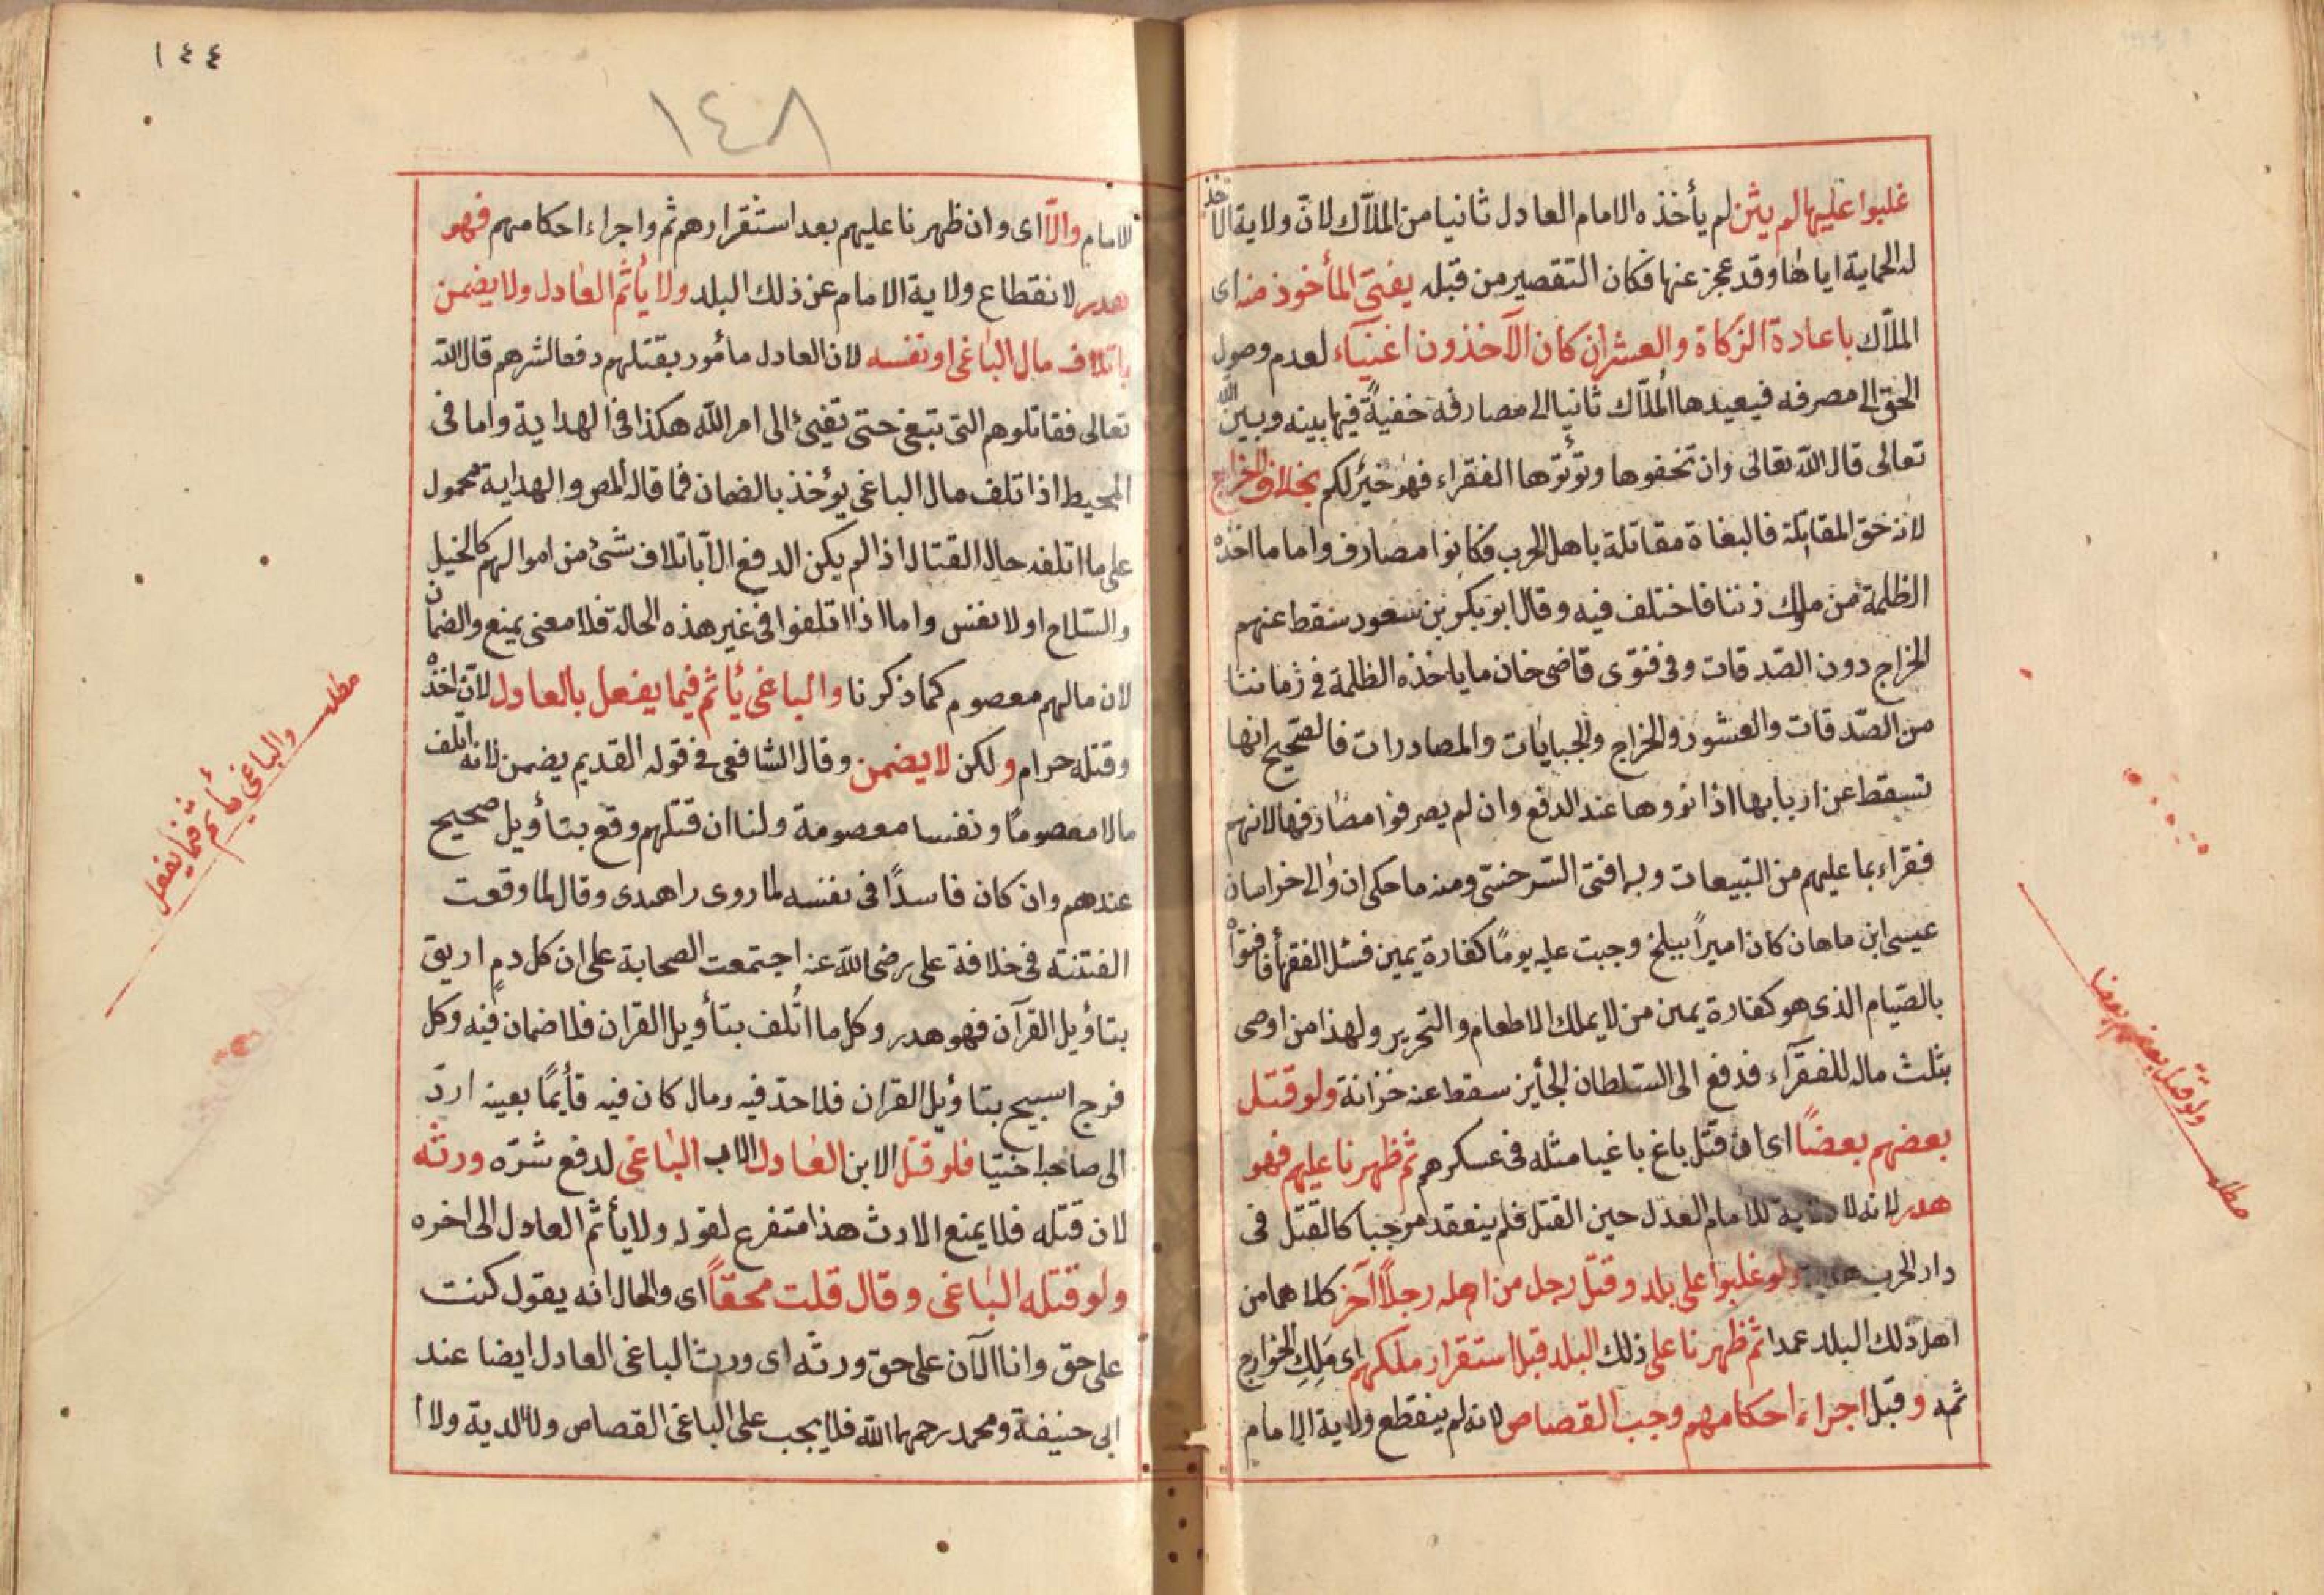 غلبوا عليها لم يثن لم يأخذه الامام العادل ثانيا من الملاّك لانّ ولاية الاخذ
له الحماية اياها وقد عجز عنها فكان التقصير من قبله يفتى المأخوذ منه اى
الملاّك باعادة الزكاة والعشر ان كان الآخذون اغنيآء لعدم وصول
الحق الى مصرفه فيعيدها المُلاّك ثانيا الى مصارفه خفيةً فيما بينه وبين الله
تعالى قال الله تعالى وان تخفوها وتؤتوها الفقراء فهو خيرٌ لكم بخلاف الخراج
لانه حق المقاتلة فالبغاة مقاتلة باهل الحرب فكانوا مصارف واما ما اخذه
الظلمة من ملوك زننا فاختلف فيه وقال ابو بكر بن سعود سقط عنهم
الخراج دون الصّدقات وفى فتوى قاضى خان ما ياخذه الظلمة فى زماننا
من الصّدقات والعشور والخراج والجبايات والمصادرات فالصّحيح انها
تسقط عن اربابها اذا نووها عند الدفع وان لم يصرفوا مصارفها لانهم
فقراء بما عليهم من التبيعات وبه افتى السّرخسىّ ومنه ما حكى ان والى خراسان
عيسى ابن ماهان كان اميرًا ببلخ وجبت عليه يومًا كفارة يمين فسئل الفقهأ فافتوه
بالصّيام الذى هو كفارة يمين من لا يملك الاطعام والتحرير ولهذا من اوصى
بثلث ماله للفقرآء فدفع الى السّلطان الجأيز سقط عنه خزانة ولو قتل
بعضهم بعضًا اى ان قتل باغ باغيا مثله فى عسكرهم ثم ظهرنا عليهم فهو
هدر لانه لا للامام العدل حين القتل فلم ينعقد موجبا كالقتل فى
دار الحرب ولو غلبوا على بلد وقتل رجل من اهله رجلاً آخر كلاهما من
اهل ذلك البلد عمدا ثم ظهرنا على ذلك البلد قبل استقرار ملكهم اى مَلِكِ الخوارج
ثمه وقبل اجراء احكامهم وجب القصاص لانه لم ينقطع ولاية الامام
ولو قتل بعضهم بعضا
مطلب
١٤٤
١٤٨
الامام والاّ اى وان ظهرنا عليهم بعد استقرارهم ثم واجراء احكامهم فهو
هدر لانقطاع ولاية الامام عن ذلك البلد ولا يأثم العادل ولا يضمن
باتلاف مال الباغى او نفسه لان العادل مأمور بقتلهم دفعا لشرهم قال الله
تعالى فقاتلوهم التى تبغى حتى تفئ الى امر الله هكذا فى الهداية واما فى
المحيط اذا تلف مال الباغى يؤخذ بالضمان فما قاله المص والهداية محمول
على ما اتلفه حال القتال اذا لم يكن الدفع الاّ باتلاف شئ من اموالهم كالخيل
والسّلاح اولا نفس واما اذا اتلفوا فى غير هذه الحالة فلا معنى يمنع والضمان
لان مالهم معصوم كما ذكرنا والباغى يأثم فيما يفعل بالعادل لان اخذه
وقتله حرام ولكن لا يضمن وقال الشافعى فى قوله القديم يضمن لانه اتلف
مالا معصومًا ونفسا معصومة ولنا ان قتلهم وقع بتأويل صحيح
عندهم وان كان فاسدًا فى نفسه لما روى راهدى وقال لما وقعت
الفتنة فى خلافة على رضى الله عنه اجتمعت الصحابة على ان كل دمٍ اريق
بتاؤيل القرآن فهو هدر وكل ما اتُلف بتأويل القران فلا ضمان فيه وكل
فرج اسبيح بتاؤيل القران فلا حدّ فيه ومال كان فيه قأيمًا بعينه اردّ
الى صاحبه اختيا فلو قتل الابن العادل الاب الباغى لدفع شرّه ورثه
لان قتله فلا يمنع الارث هذا متفرع لقوله ولا يأثم العادل الى اخره
ولو قتله الباغى وقال قلت محقاً اى والحال انه يقول كنت
على حق وانا الآن على حق ورثه اى ورث الباغى العادل ايضا عند
ابى حنيفة ومحمد رحمهما الله فلا يجب على الباغى القصاص ولا الدية ولا ا
مطلب
والباغى يأثم فيما يفعل